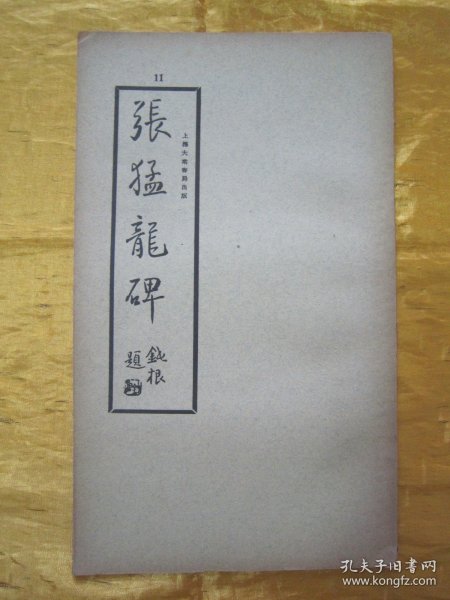 11
上海大眾書局出版
張猛龍碑
鈍根
題
孔夫子旧书网
www.kongfz.com